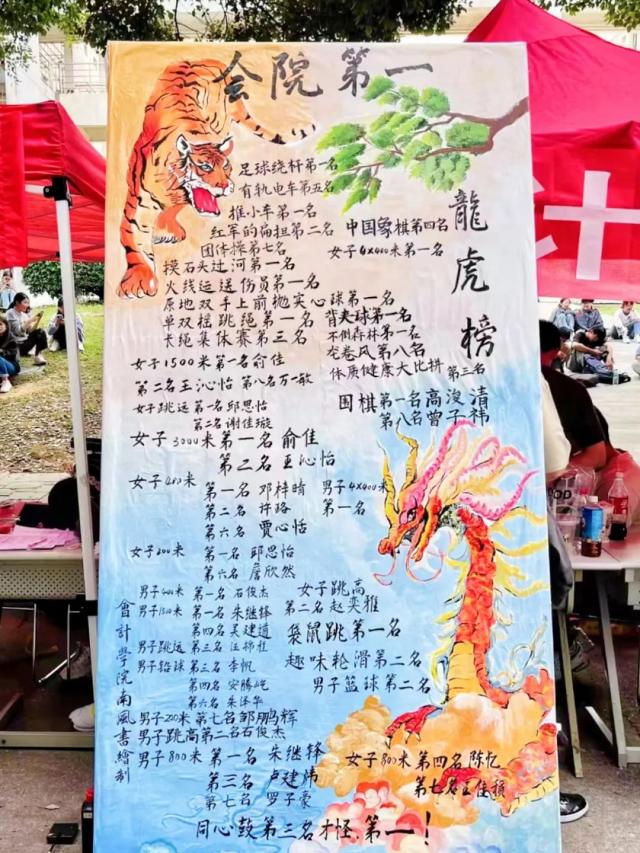 会院第一
龍虎榜
足球绕杆第一名
有轨电车第五名
推小车第一名
红军的扁担第二名 中国象棋第四名
团体操第七名 女子4x400米第一名
摸石头过河第一名
火线运送伤员第一名
原地双手上前抛实心球第一名
单双摇跳绳第一名 背夹球第一名
长绳集体赛第三名 不倒森林第一名
龙卷风第八名
体质健康大比拼第三名
女子1500米第一名俞佳
第二名王沁怡 第八名万一敏
女子跳远 第一名 邱思怡
第二名 谢佳璇
围棋第一名高浚清
第八名曾子祎
女子3000米第一名 俞佳
第二名王沁怡
女子400米 第一名 邓梓晴
第二名 许珞
第六名 贾心恬
男子4x400米
第一名
女子200米 第一名 邱思怡
第六名 詹欣然
男子400米 第一名 石俊杰
男子1500米 第一名 朱继锋
第四名 吴建道
男子跳远 第三名 汪锦杜
男子铅球 第三名 李帆
第四名 安腾屹
第六名 朱泽华
女子跳高
第二名 赵奕雅
袋鼠跳第一名
趣味轮滑第二名
男子篮球第二名
男子200米 第七名 邹鹏辉
男子跳高第二名石俊杰
男子800米 第一名 朱继锋
第三名 卢建炜
第七名 罗子豪
女子800米 第四名 陈忆
第七名王佳
同心鼓第三名才怪,第一!
会计学院南風書繪制
计